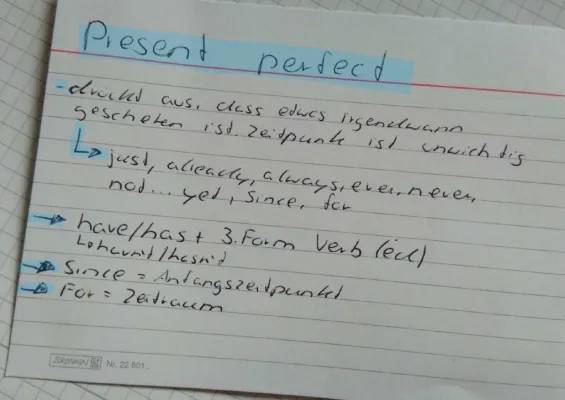 Present perfect
- drückt aus, dass etwas irgendwann
geschehen ist. Zeitpunk ist unwichtig
↳ just, already, always, ever, never,
not... yet, since, for
→ have/has + 3. Form Verb (ed)
↳ havnt/hasnt
→ Since = Anfangszeitpunkt
→ For = Zeitraum
Nr. 22 601